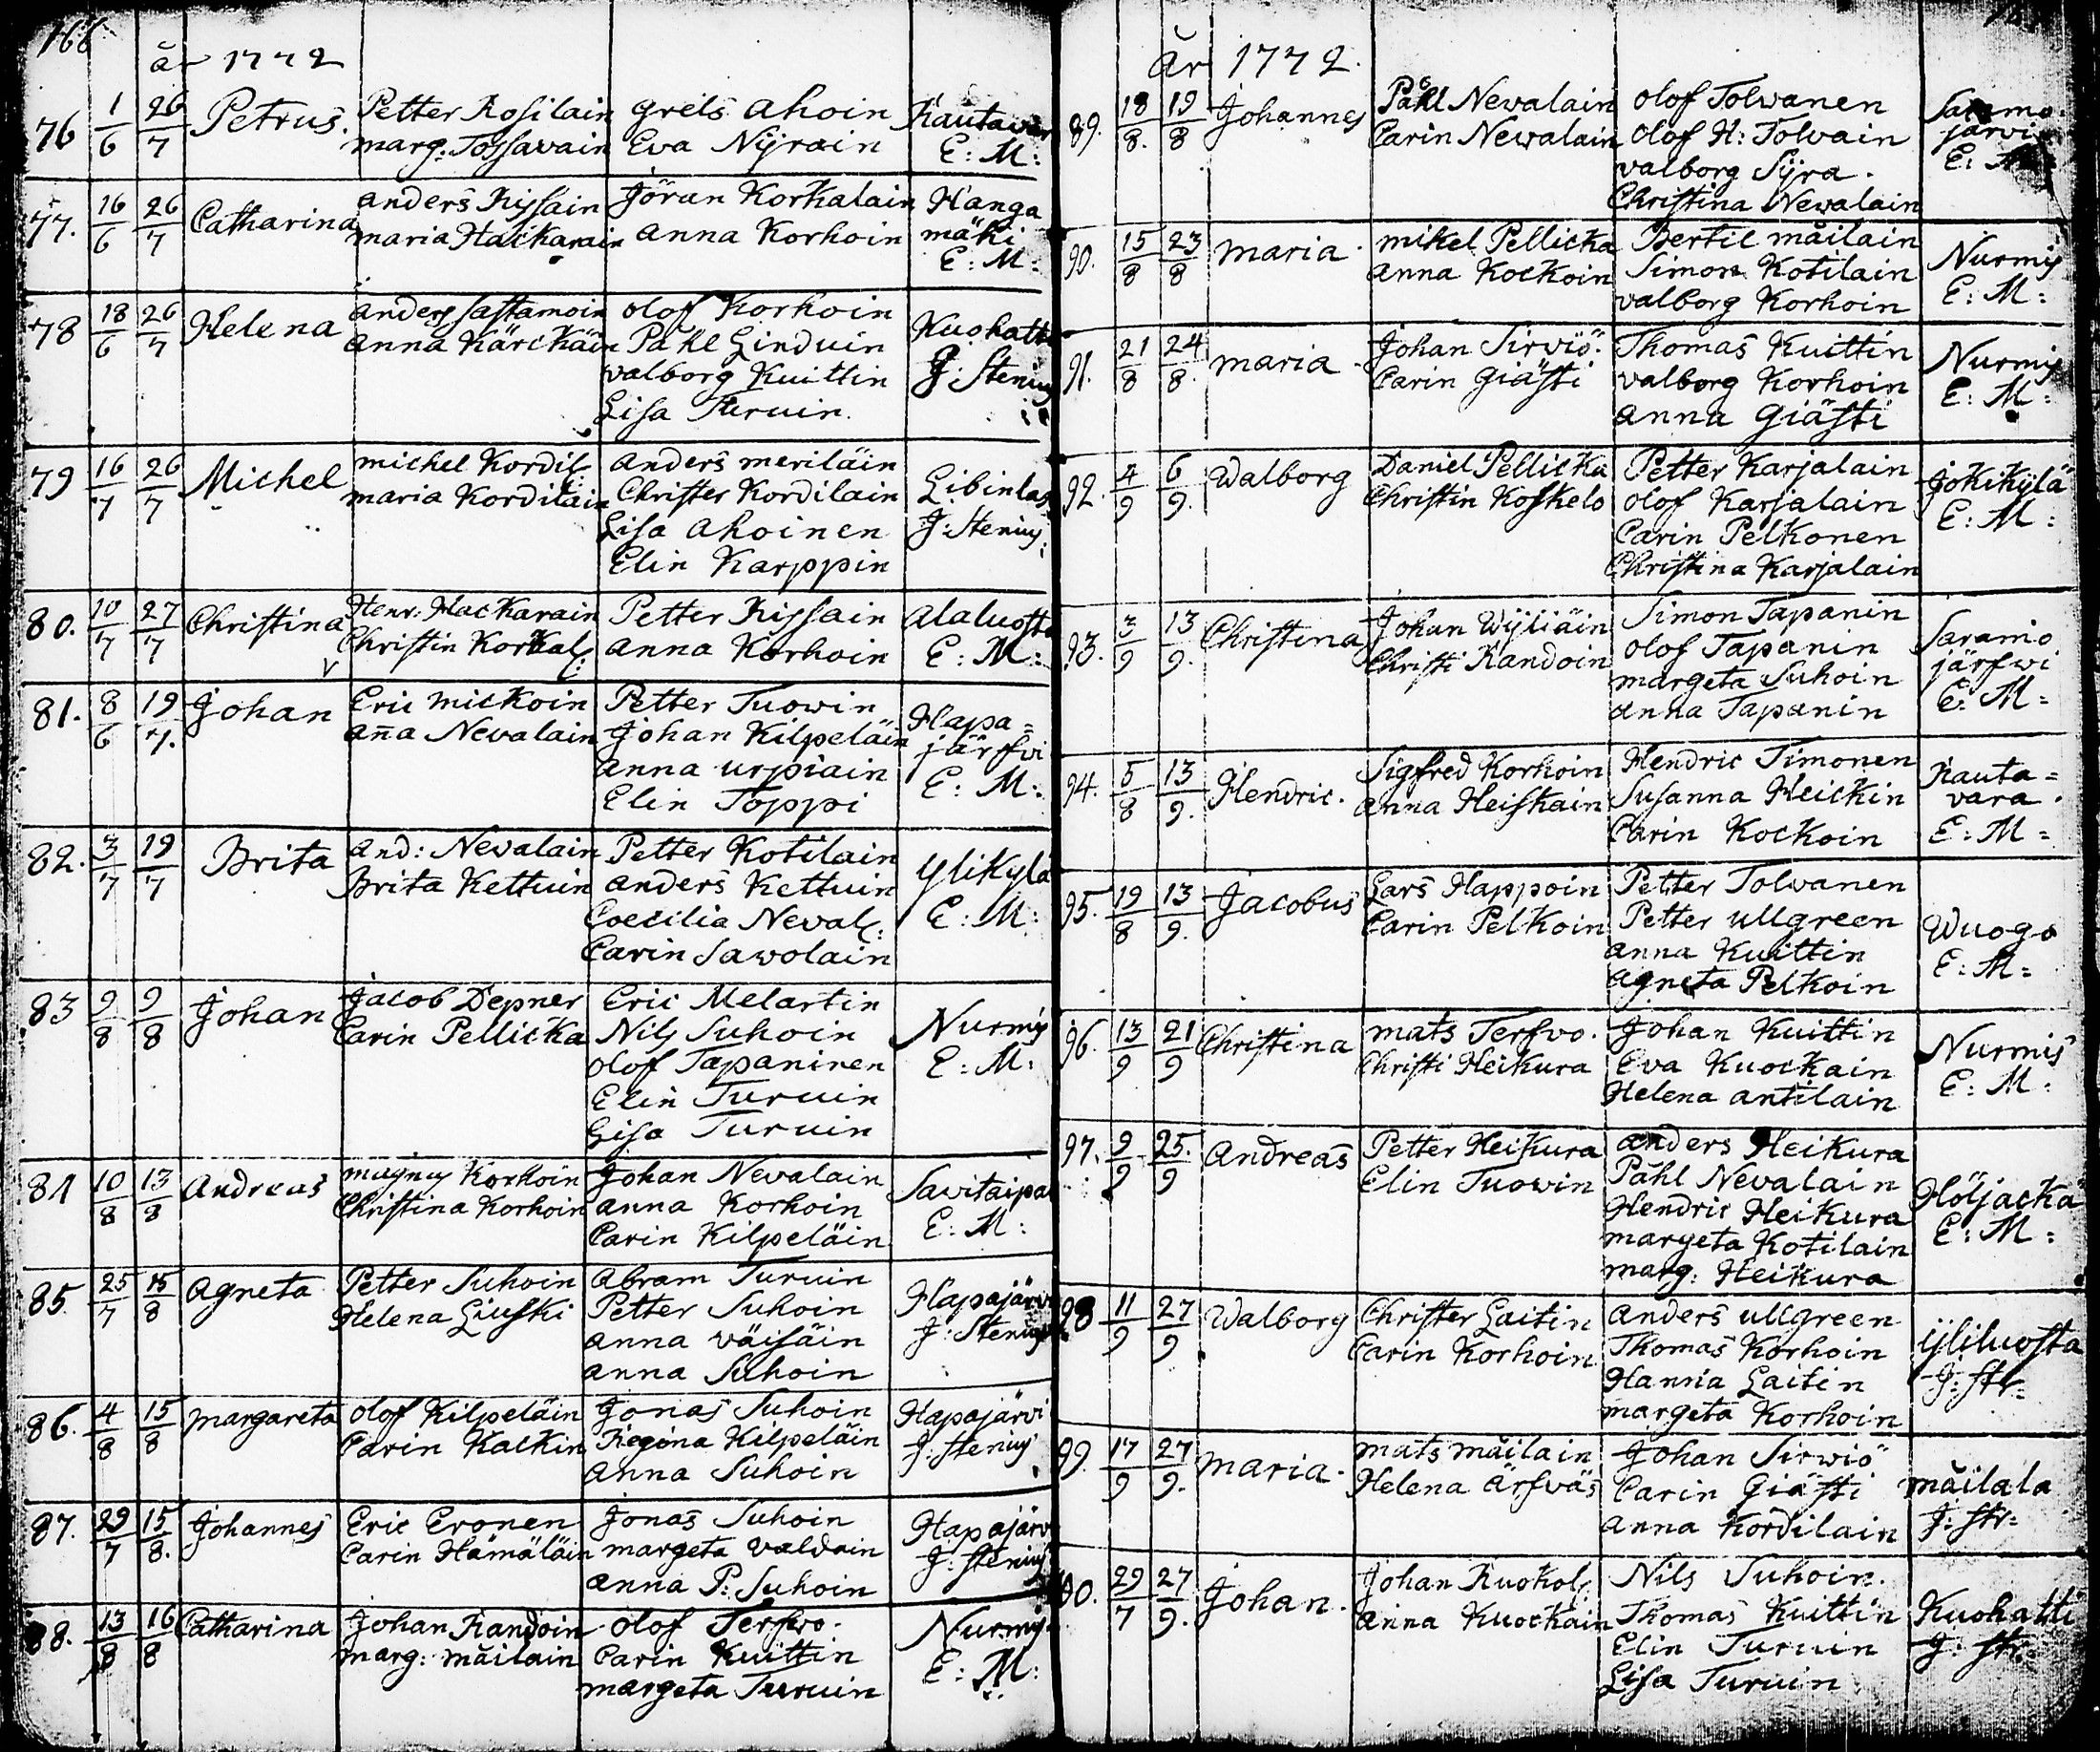 166
år 1772
76 1/6 26/7 Petrus. Petter Rosilain Grels Ahoin Rautavar
marg: Tossavain Eva Nÿrain E: M:
77. 16/6 26/7 Catharina Anders Rissain Jöran Korkalain Hanga
maria Hackarain Anna Korhoin mäki
E: M:
78 18/6 26/7 Helena Anders Sastamoin Olof Korhoin Kuohatti
Anna Kärckäin Påhl Linduin J: Stenius
Valborg Kuittin
Lisa Turuin.
79 16/7 26/7 Michel michel Kordil: Anders meriläin Libinlax
maria Kordilain Christer Kordilain J: Stenius:
Lisa Ahoinen
Elin Karppin
80. 10/7 27/7 Christina Henr: Hackarain Petter Rissain Alaluosta
Christin Korkal: Anna Korhoin E: M:
81. 8/6 19/7. Johan Eric Mickoin Petter Tuowin Hapa=
Aña Nevalain Johan Kilpeläin järfvi
Anna Urpiain E: M:
Elin Toppoi
82. 3/7 19/7 Brita And: Nevalain Petter Kotilain Ylikylä
Brita Kettuin Anders Kettuin E: M:
Coecilia Neval:
Carin Sawolain
83 9/8 9/8 Johan Jacob Depner Eric Melartin Nurmis
Carin Pellicka Nils Suhoin E: M:
Olof Tapaninen
Elin Turuin
Lisa Turuin
84 10/8 13/8 Andreas magnus Korhoin Johan Nevalain Savitaipal
Christina Korhoin Anna Korhoin E: M:
Carin Kilpeläin
85. 25/7 15/8 Agneta Petter Suhoin Abram Turuin Hapajärvi
Helena Liuski Petter Suhoin J: Stenius
Anna Väisäin
Anna Suhoin
86. 4/8 15/8 margareta Olof Kilpeläin Jonas Suhoin Hapajärvi
Carin Kackin Regina Kilpeläin J: Stenius
Anna Suhoin
87. 29/7 15/8. Johannes Eric Eronen Jonas Suhoin Hapajärvi
Carin Hämäläin margeta Valdain J: Stenius
Anna P: Suhoin
88. 13/8 16/8 Catharina Johan Randoin Olof Terfwo. Nurmis
marg: mäilain Carin Kuittin E: M:
margeta Turuin
År 1772.
89. 18/8. 19/8 Johannes Påhl Nevalain Olof Tolwanen Saramo
Carin Newalain Olof H: Tolvain järvi
Valborg Sÿra. E: M:
Christina Newalain
90. 15/8 23/8 maria. mikel Pellicka Bertil mäilain Nurmis
Anna Kockoin Simon Kotilain E: M:
Valborg Korhoin
91. 21/8 24/8. maria. Johan Sirviö. Thomas Kuittin Nurmis
Carin Giästi Valborg Korhoin E: M:
Anna Giästi
92. 4/9 6/9. Walborg Daniel Pellicka Petter Karjalain Jokikylä
Christin Koskelo Olof Karjalain E: M:
Carin Pelkonen
Christina Karjalain
93. 3/9 13/9. Christina Johan Wÿliäin Simon Tapanin Saramo
Christi Randoin Olof Tapanin järfwi
margeta Suhoin E: M:
Anna Tapanin
94. 5/8 13/9. Hendric. Sigfred Korhoin Hendric Timonen Rauta=
Anna Heiskain Susanna Heickin vara.
Carin Kockoin E: M:
95. 19/8 13/9. Jacobus Lars Happoin Petter Tolwanen Wuogo
Carin Pelkoin Petter Ullgreen E: M:
Anna Kuittin
Agneta Pelkoin
96. 13/9 21/9 Christina mats Terfvo. Johan Kuittin Nurmis
Christi Heikura Eva Kuockain E: M:
Helena Antilain
97. 9/9 25./9 Andreas Petter Heikura Anders Heikura Höljäckä
Elin Tuowin Påhl Nevalain E: M:
Hendric Heikura
margeta Kotilain
marg: Heikura
98 11/9 27/9 Walborg Christer Laitin Anders Ullgreen Yliluosta
Carin Korhoin Thomas Korhoin J: Str=
Hanna Laitin
margeta Korhoin
99. 17/9 27/9. maria. mats mäilain Johan Sirwiö mäilala
Helena Ärfväs Carin Giästi J: Str=
Anna Kordilain
100. 29/7 27/9. Johan. Johan Ruokol: Nils Suhoin. Kuohatti
Anna Kuockain Thomas Kuittin J: Str.
Elin Turuin
Lisa Turuin